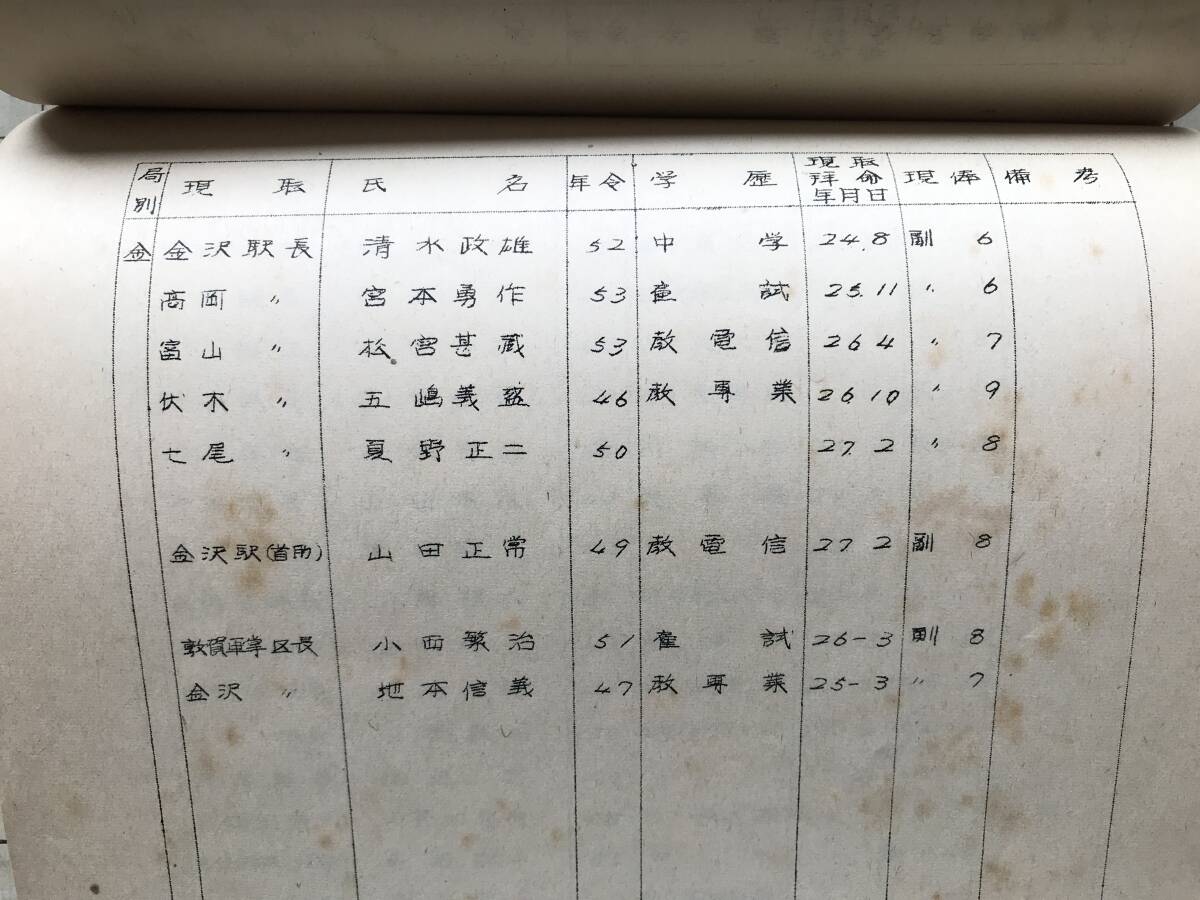 局別 現职 氏名 年令 学歴 現职拝命年月日 現俸 備考
金 金沢駅長 清水政雄 52 中学 24.8 副 6
高岡 〃 宮本勇作 53 雇試 25.11 〃 6
富山 〃 松宮甚蔵 53 教電信 26 4 〃 7
伏木 〃 五嶋義盛 46 教専業 26.10 〃 9
七尾 〃 夏野正二 50 27.2 〃 8
金沢駅(首助) 山田正常 49 教電信 27 2 副 8
敦賀車掌区長 小西繁治 51 雇試 26-3 副 8
金沢 〃 地本信義 47 教専業 25-3 〃 7